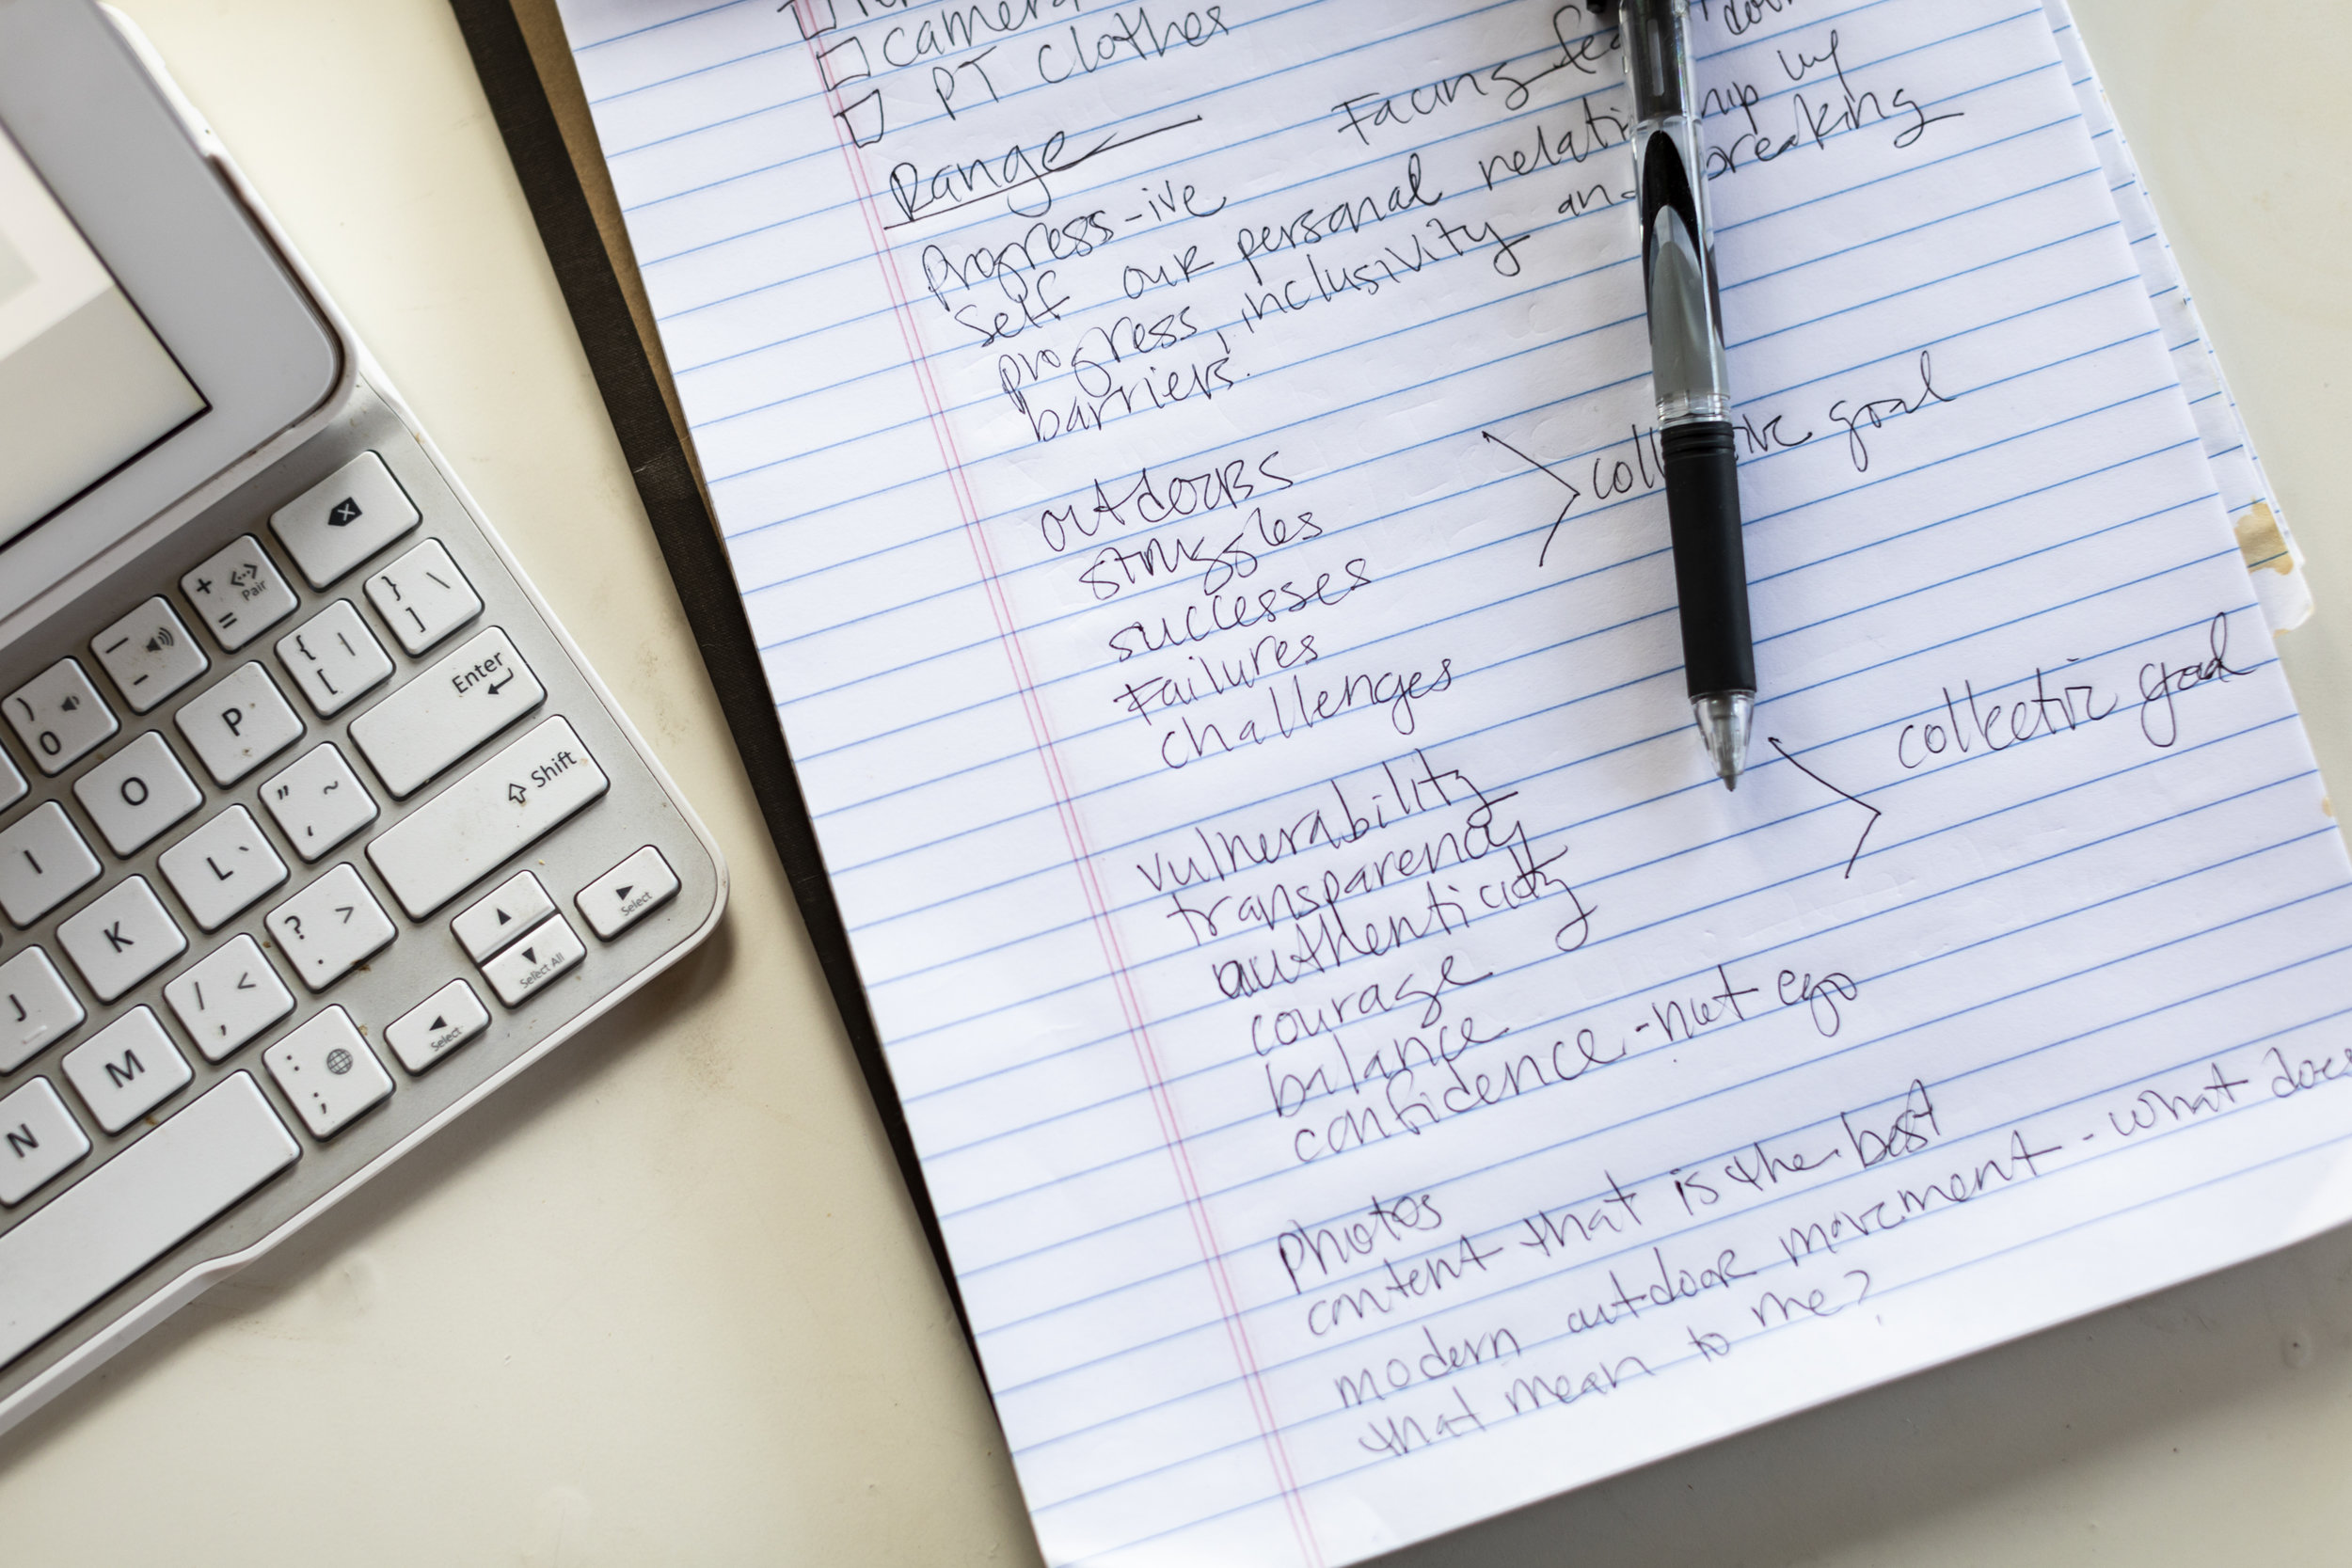 camera
PT clothes
Range
Facing
Progress-ive
self our personal
up by
progress, inclusivity
breaking
barriers.
outdoors
struggles
successes
Failures
challenges
goal
vulnerability
transparency
authenticity
courage
balance
confidence - not ego
collective goal
photos
content that is the best
modern outdoor movement - what does
that mean to me?
+
=
Pair
-
)
0
}
\
]
{
|
[
P
O
I
Enter
"
~
'
L
K
J
Shift
?
>
.
/
<
,
M
N
:
;
Select
Select All
Select